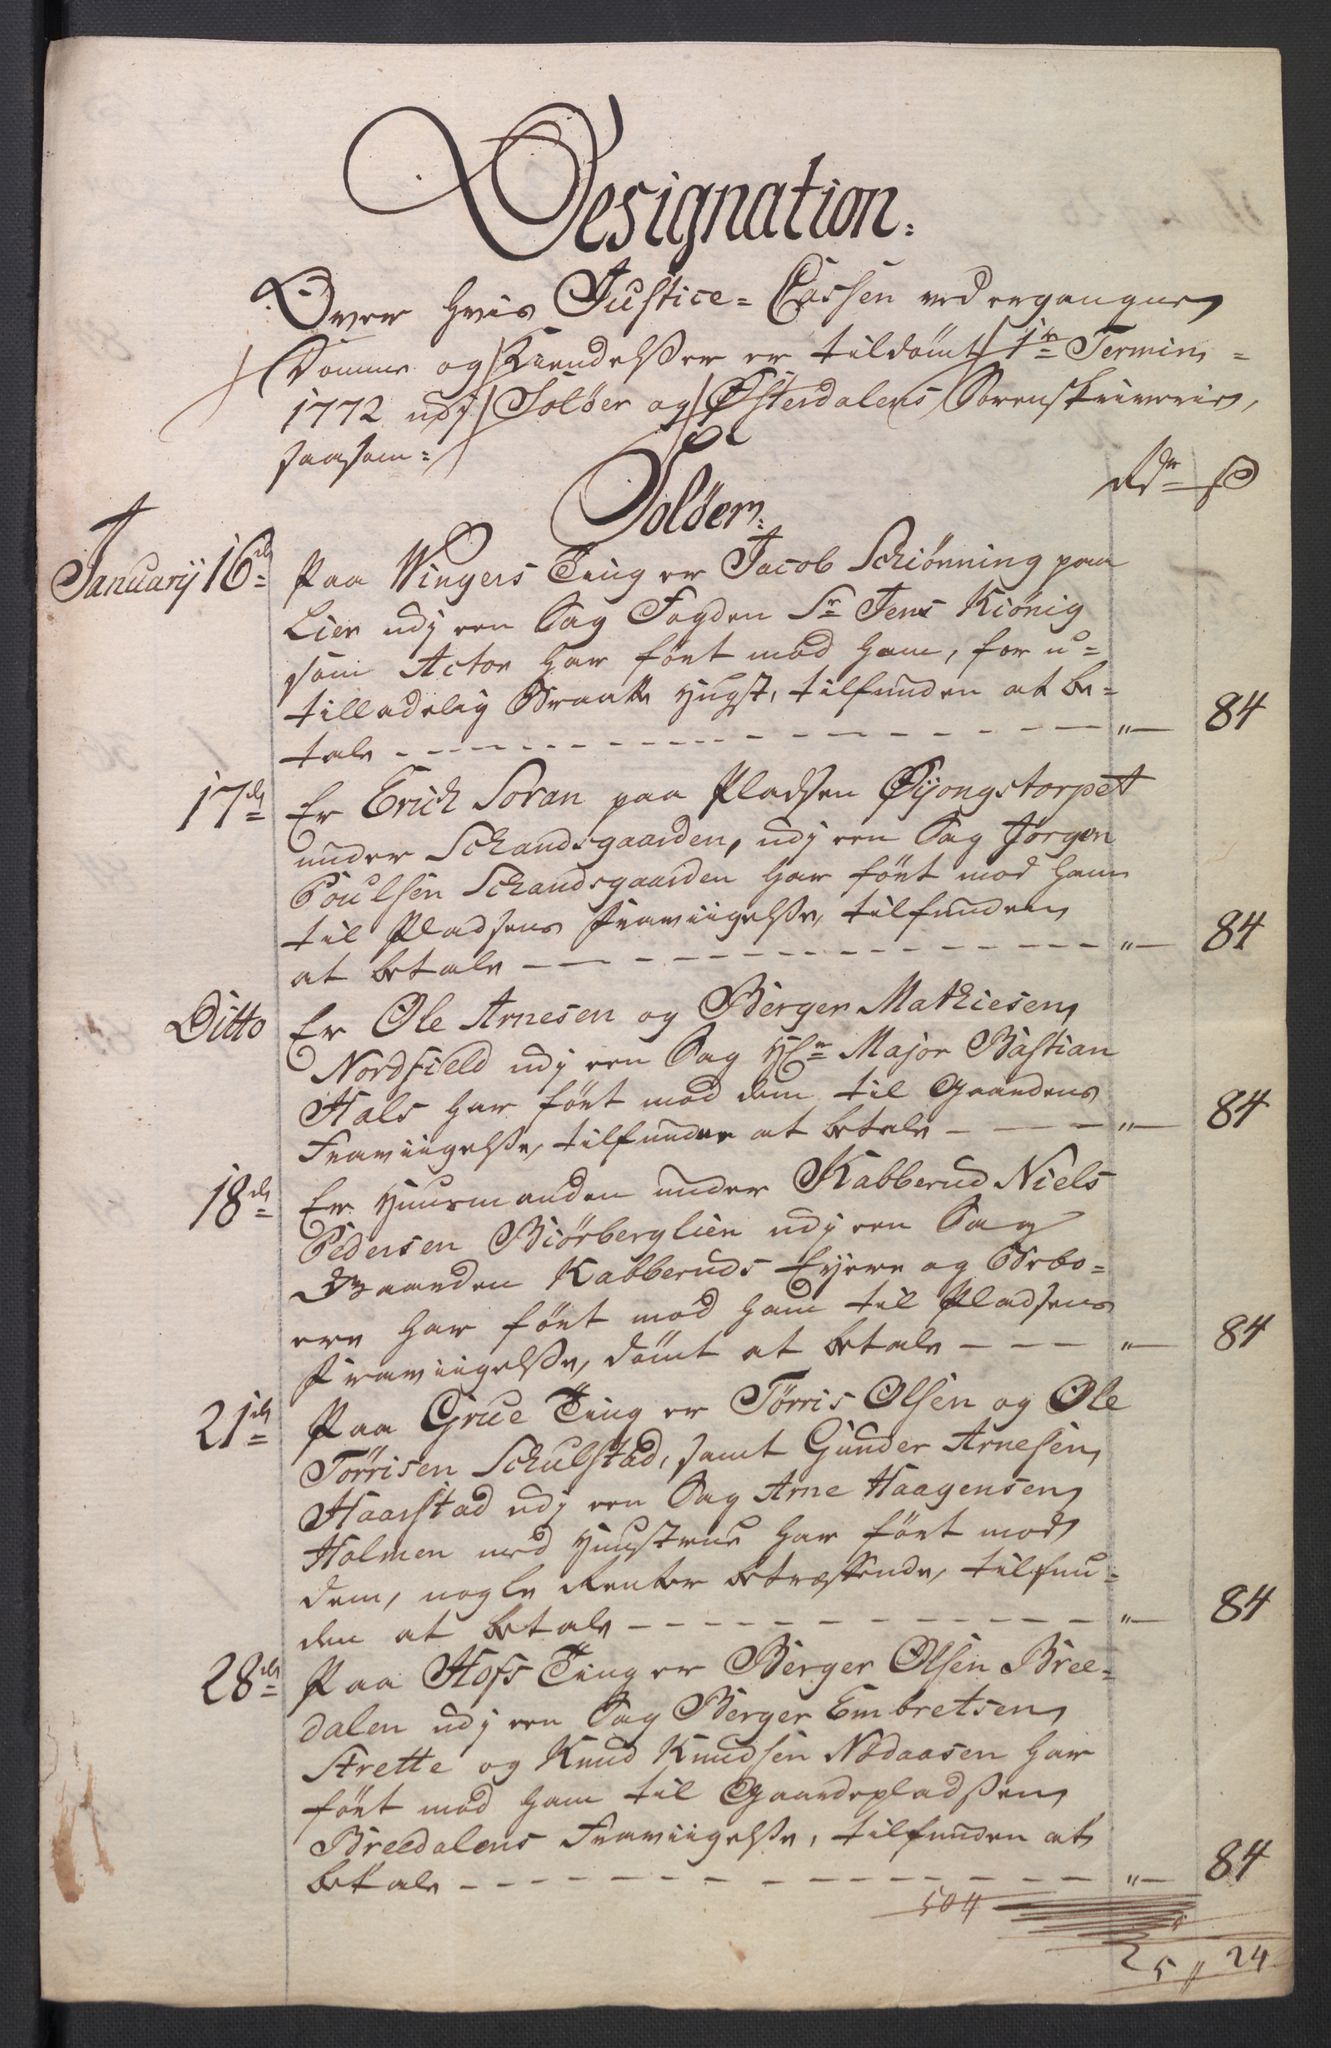 Designation.
Over hvis Justice-Cassen ved ergangne
Domme og Kiendelsser er tildømt 1te Termin
1772 udj Soløer og Østerdalens Sorenskriverie,
saasom:
Rdr ß
Soløer.
Januarij 16de Paa Wingers Ting er Jacob Schiønning paa
Lier udj een Sag Fogden Sr Jens Kiønig
som Actor har ført mod ham, for u-
tilladelig Braatte Hugst, tilfunden at be-
tale - - - " 84
17de Er Erich Soran paa Pladsen Øijongstorpet
under Schandsgaarden, udj een Sag Jørgen
Poulsen Schandsgaarden har ført mod ham
til Pladsens Fraviigelsse, tilfunden
at betale - - - " 84
Ditto Er Ole Arnesen og Berger Mathiesen
Nordfield udj een Sag Hr Major Bastian
Hals har ført mod dem til Gaardens
Fraviigelsse, tilfunden at betale - - - " 84
18de Er Huusmanden under Kabberud Niels
Pedersen Biørberglien udj een Sag
Gaarden Kabberuds Eyere og Beboe-
ere har ført mod ham til Pladsens
Fraviigelsse, dømt at betale - - - " 84
21de Paa Grue Ting er Tørris Olsen og Ole
Tørrisen Schulstad, samt Gunder Arnesen
Haarstad udj een Sag Arne Haagensen
Holmen med Huustrue har ført mod
dem, nogle Renter betræffende, tilfun-
den at betale - - - " 84
28de Paa Hofs Ting er Berger Olsen Bree-
dalen udj een Sag Berger Embretsen
Strette og Knud Knudsen Nodaasen har
ført mod ham til Gaardepladsen
Breedalens Fraviigelsse, tilfunden at
betale - - - " 84
504
5 " 24